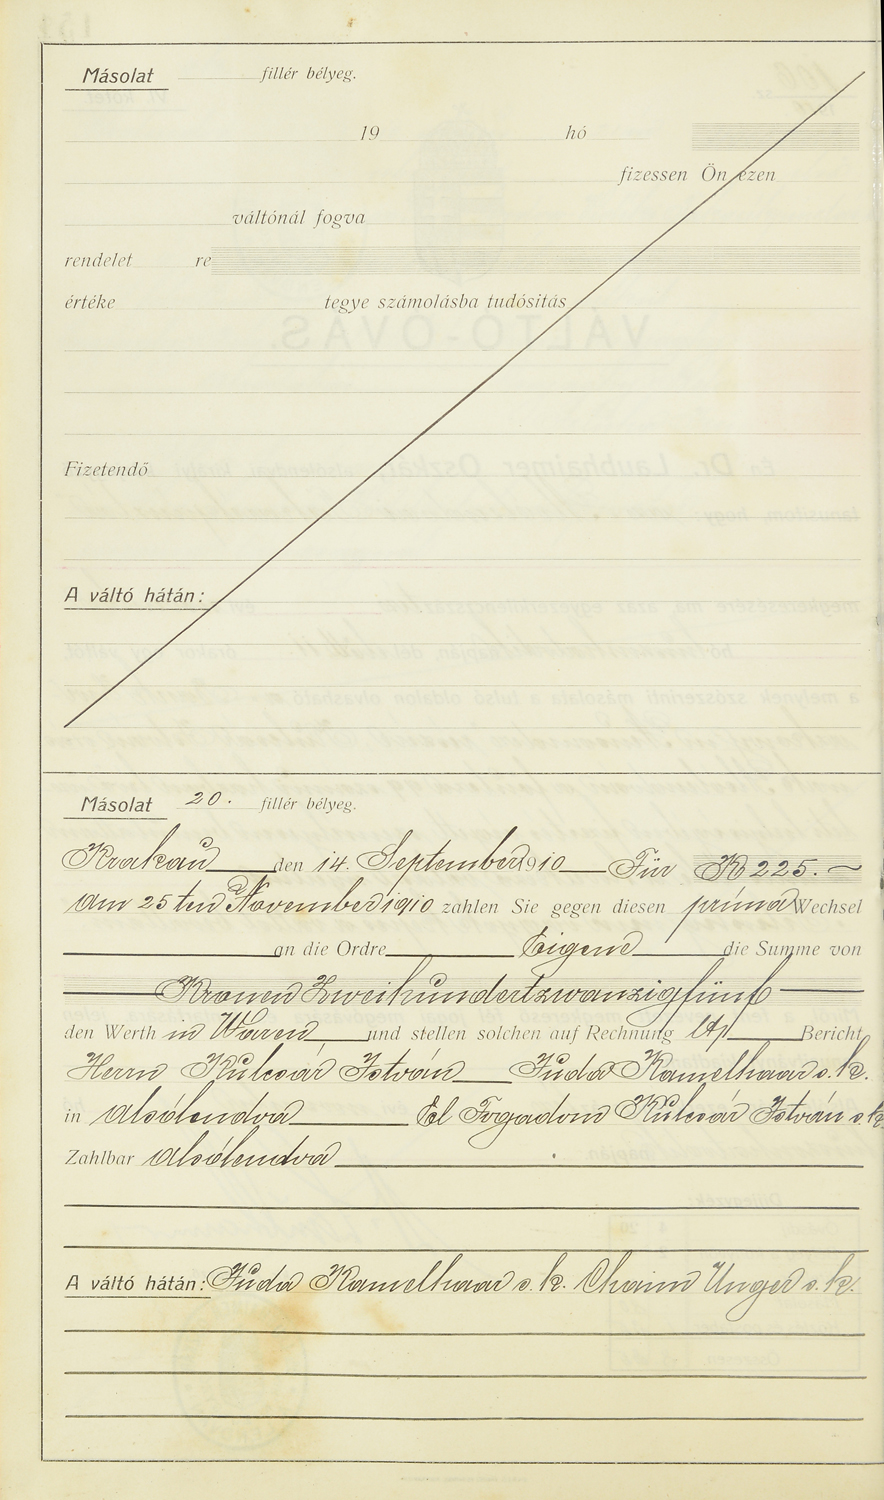 Másolat fillér bélyeg.
19 hó
fizessen Ön ezen
váltónál fogva
rendelet re
értéke tegye számolásba tudósitás
Fizetendő
A váltó hátán:
Másolat 20. fillér bélyeg.
Krakau den 14. September 1910 Für K 225.—
Am 25 ten November 1910 zahlen Sie gegen diesen prima Wechsel
an die Ordre Eigene die Summe von
Kronen Zweihundertzwanzigfünf
den Werth in Waren und stellen solchen auf Rechnung Bericht
Herrn Kulcsár István Juda Kamelhaar s. k.
in Alsólendva El Fogadom Kulcsár István s. k.
Zahlbar Alsólendva
A váltó hátán: Juda Kamelhaar s. k. Chaim Unger s. k.